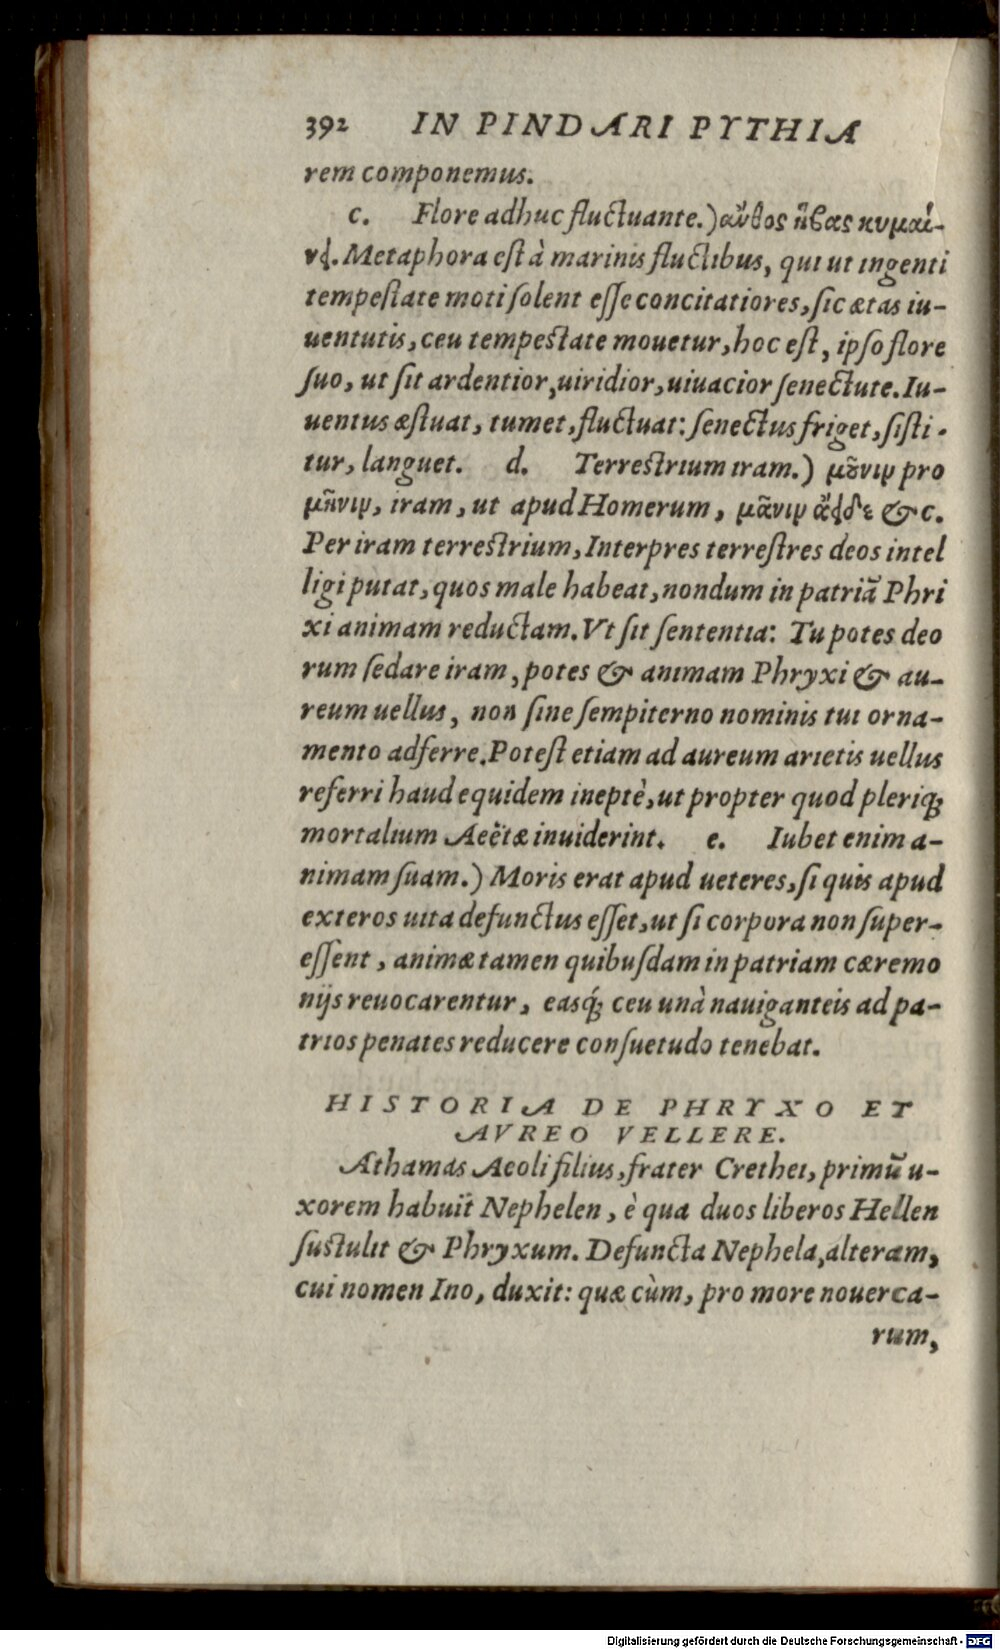 392 IN PINDARI PYTHIA
rem componemus.
c. Flore adhuc fluctuante.) ἄνθος ἥβας κυμαί-
νει. Metaphora est à marinis fluctibus, qui ut ingenti
tempestate moti solent esse concitatiores, sic ætas iu-
uentutis, ceu tempestate mouetur, hoc est, ipso flore
suo, ut sit ardentior, uiridior, uiuacior senectute. Iu-
uentus æstuat, tumet, fluctuat: senectus friget, sisti-
tur, languet. d. Terrestrium iram.) μᾶνιν pro
μῆνιν, iram, ut apud Homerum, μᾶνιν ἄειδε &c.
Per iram terrestrium, Interpres terrestres deos intel
ligi putat, quos male habeat, nondum in patriã Phri
xi animam reductam. Vt sit sententia: Tu potes deo
rum sedare iram, potes & animam Phryxi & au-
reum uellus, non sine sempiterno nominis tui orna-
mento adferre. Potest etiam ad aureum arietis uellus
referri haud equidem ineptè, ut propter quod plerisq;
mortalium Aeëtæ inuiderint. e. Iubet enim a-
nimam suam.) Moris erat apud ueteres, si quis apud
exteros uita defunctus esset, ut si corpora non super-
essent, animæ tamen quibusdam in patriam cæremo
nijs reuocarentur, easq́; ceu unà nauiganteis ad pa-
trios penates reducere consuetudo tenebat.
HISTORIA DE PHRYXO ET
AVREO VELLERE.
Athamas Aeoli filius, frater Crethei, primũ u-
xorem habuit Nephelen, è qua duos liberos Hellen
sustulit & Phryxum. Defuncta Nephela, alteram,
cui nomen Ino, duxit: quæ cùm, pro more nouerca-
rum,
Digitalisierung gefördert durch die Deutsche Forschungsgemeinschaft - DFG